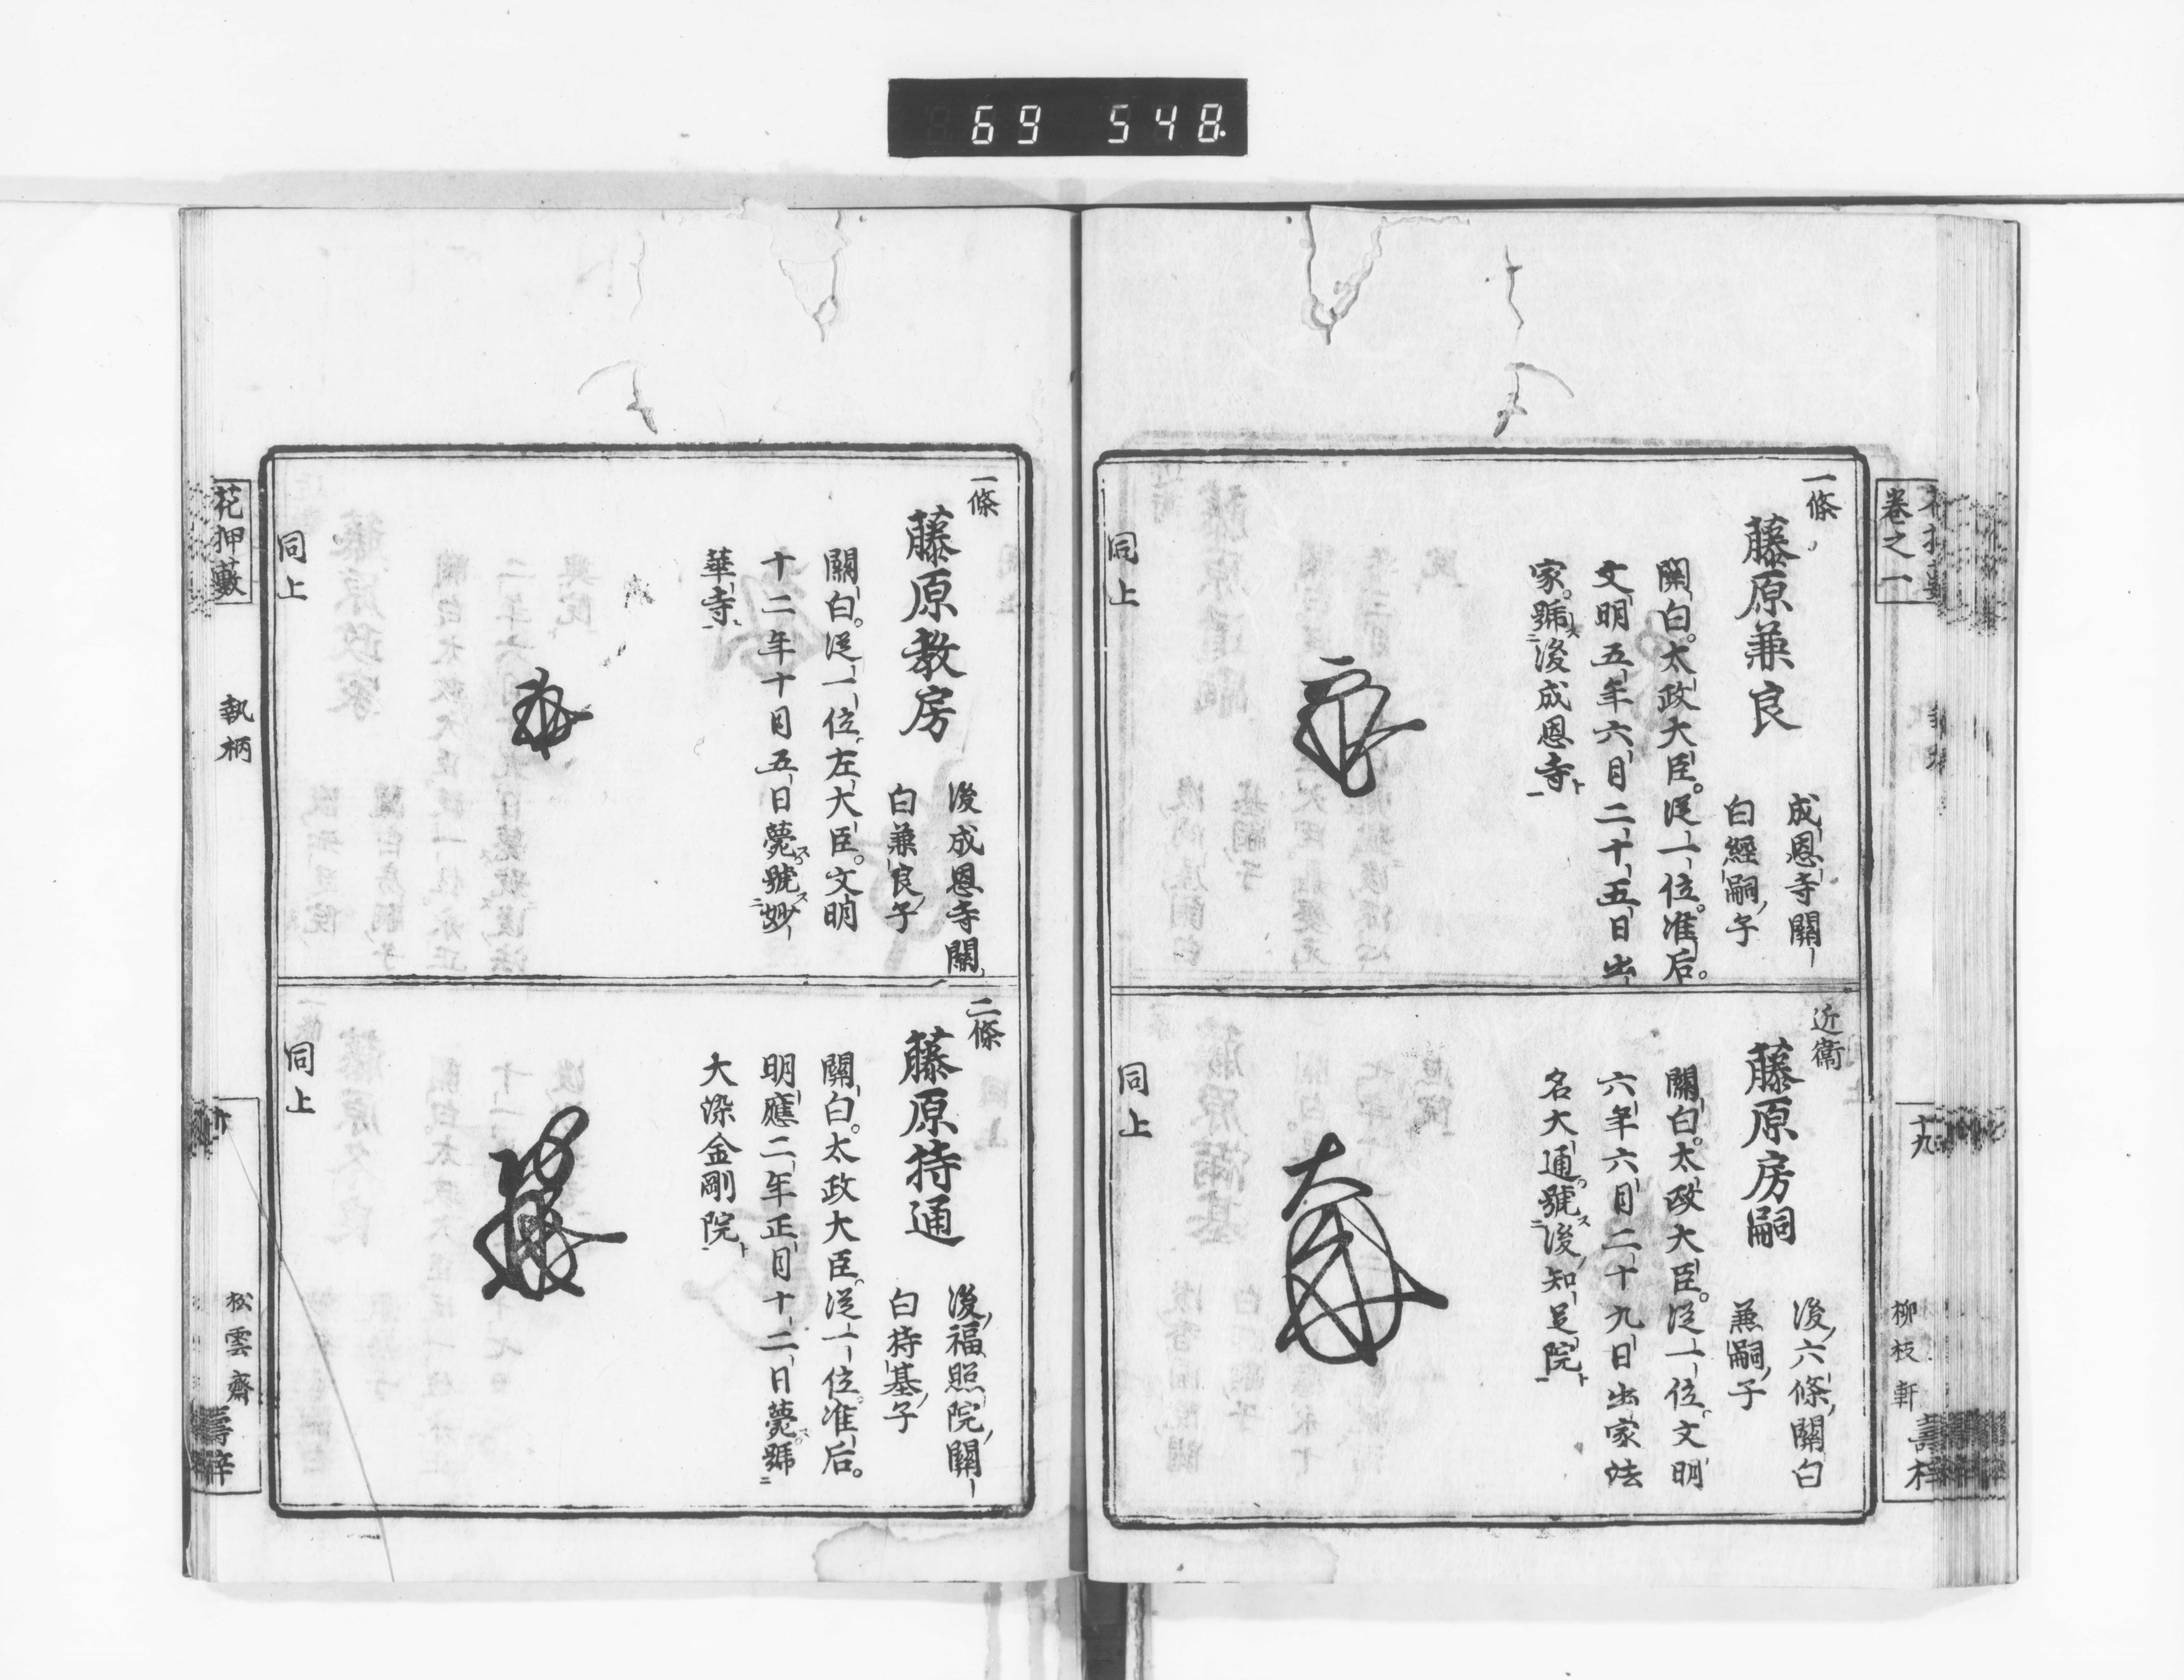 69 548
卷之一
十九
柳枝軒
一條
藤原兼良
成恩寺關
白經嗣子
關白。太政大臣。從一位。准后。
文明五年六月二十五日出
家。號後成恩寺
同上
近衞
藤原房嗣
後六條關白
兼嗣子
關白。太政大臣。從一位。文明
六年六月二十九日出家法
名大通。號後知足院
同上
一條
藤原教房
後成恩寺關
白兼良子
關白。從一位。左大臣。文明
十二年十月五日薨。號妙
華寺
同上
二條
藤原持通
後福照院關
白持基子
關白。太政大臣。從一位。准后。
明應二年正月十二日薨。號
大染金剛院
同上
花押藪
執柄
松雲齋